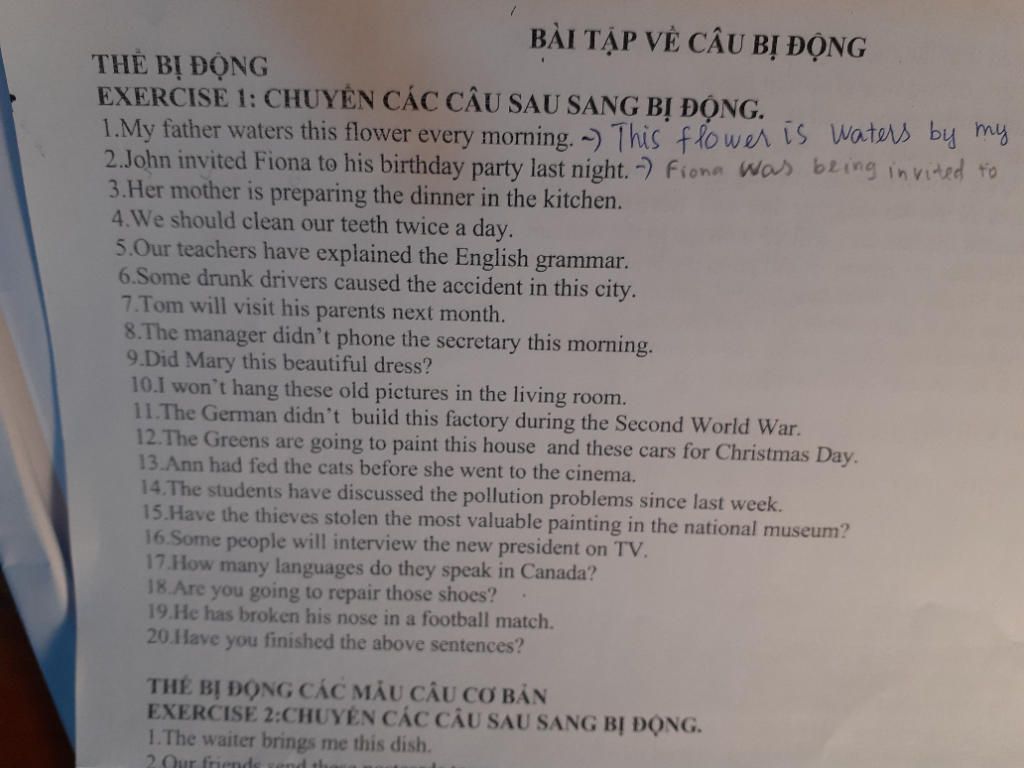 BÀI TẬP VỀ CÂU BỊ ĐỘNG
THỂ BỊ ĐỘNG
EXERCISE 1: CHUYỂN CÁC CÂU SAU SANG BỊ ĐỘNG.
1.My father waters this flower every morning. -> This flower is waters by my
2.John invited Fiona to his birthday party last night. -> Fiona was being invited to
3.Her mother is preparing the dinner in the kitchen.
4.We should clean our teeth twice a day.
5.Our teachers have explained the English grammar.
6.Some drunk drivers caused the accident in this city.
7.Tom will visit his parents next month.
8.The manager didn't phone the secretary this morning.
9.Did Mary this beautiful dress?
10.I won't hang these old pictures in the living room.
11.The German didn't build this factory during the Second World War.
12.The Greens are going to paint this house and these cars for Christmas Day.
13.Ann had fed the cats before she went to the cinema.
14.The students have discussed the pollution problems since last week.
15.Have the thieves stolen the most valuable painting in the national museum?
16.Some people will interview the new president on TV.
17.How many languages do they speak in Canada?
18.Are you going to repair those shoes?
19.He has broken his nose in a football match.
20.Have you finished the above sentences?
THỂ BỊ ĐỘNG CÁC MẪU CÂU CƠ BẢN
EXERCISE 2:CHUYỂN CÁC CÂU SAU SANG BỊ ĐỘNG.
1.The waiter brings me this dish.
2.Our friends send these